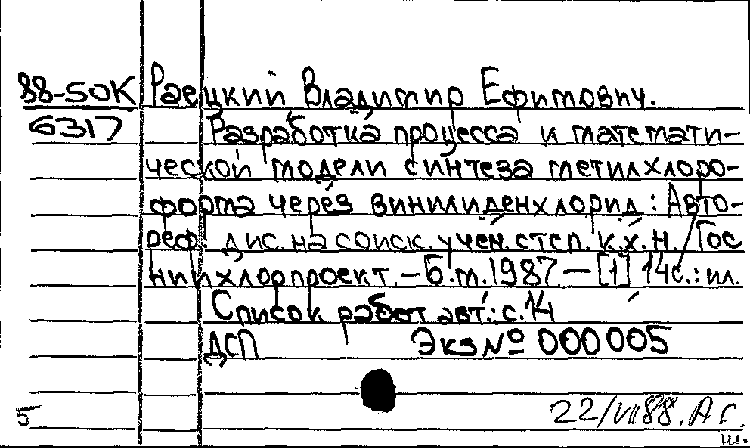 88-50К Раецкий Владимир Ефимович.
6317 Разработка процесса и математи-
ческой модели синтеза метилхлоро-
форма через винилиденхлорид : Авто-
реф. дис. на соиск. учен. степ. к.х.н. / Гос
ниихлорпроект. – Б.м. 1987 – [1] 14с. : ил.
Список работ авт.: с. 14
ДСП Экз № 000005
5 22/VI 88. А Г.